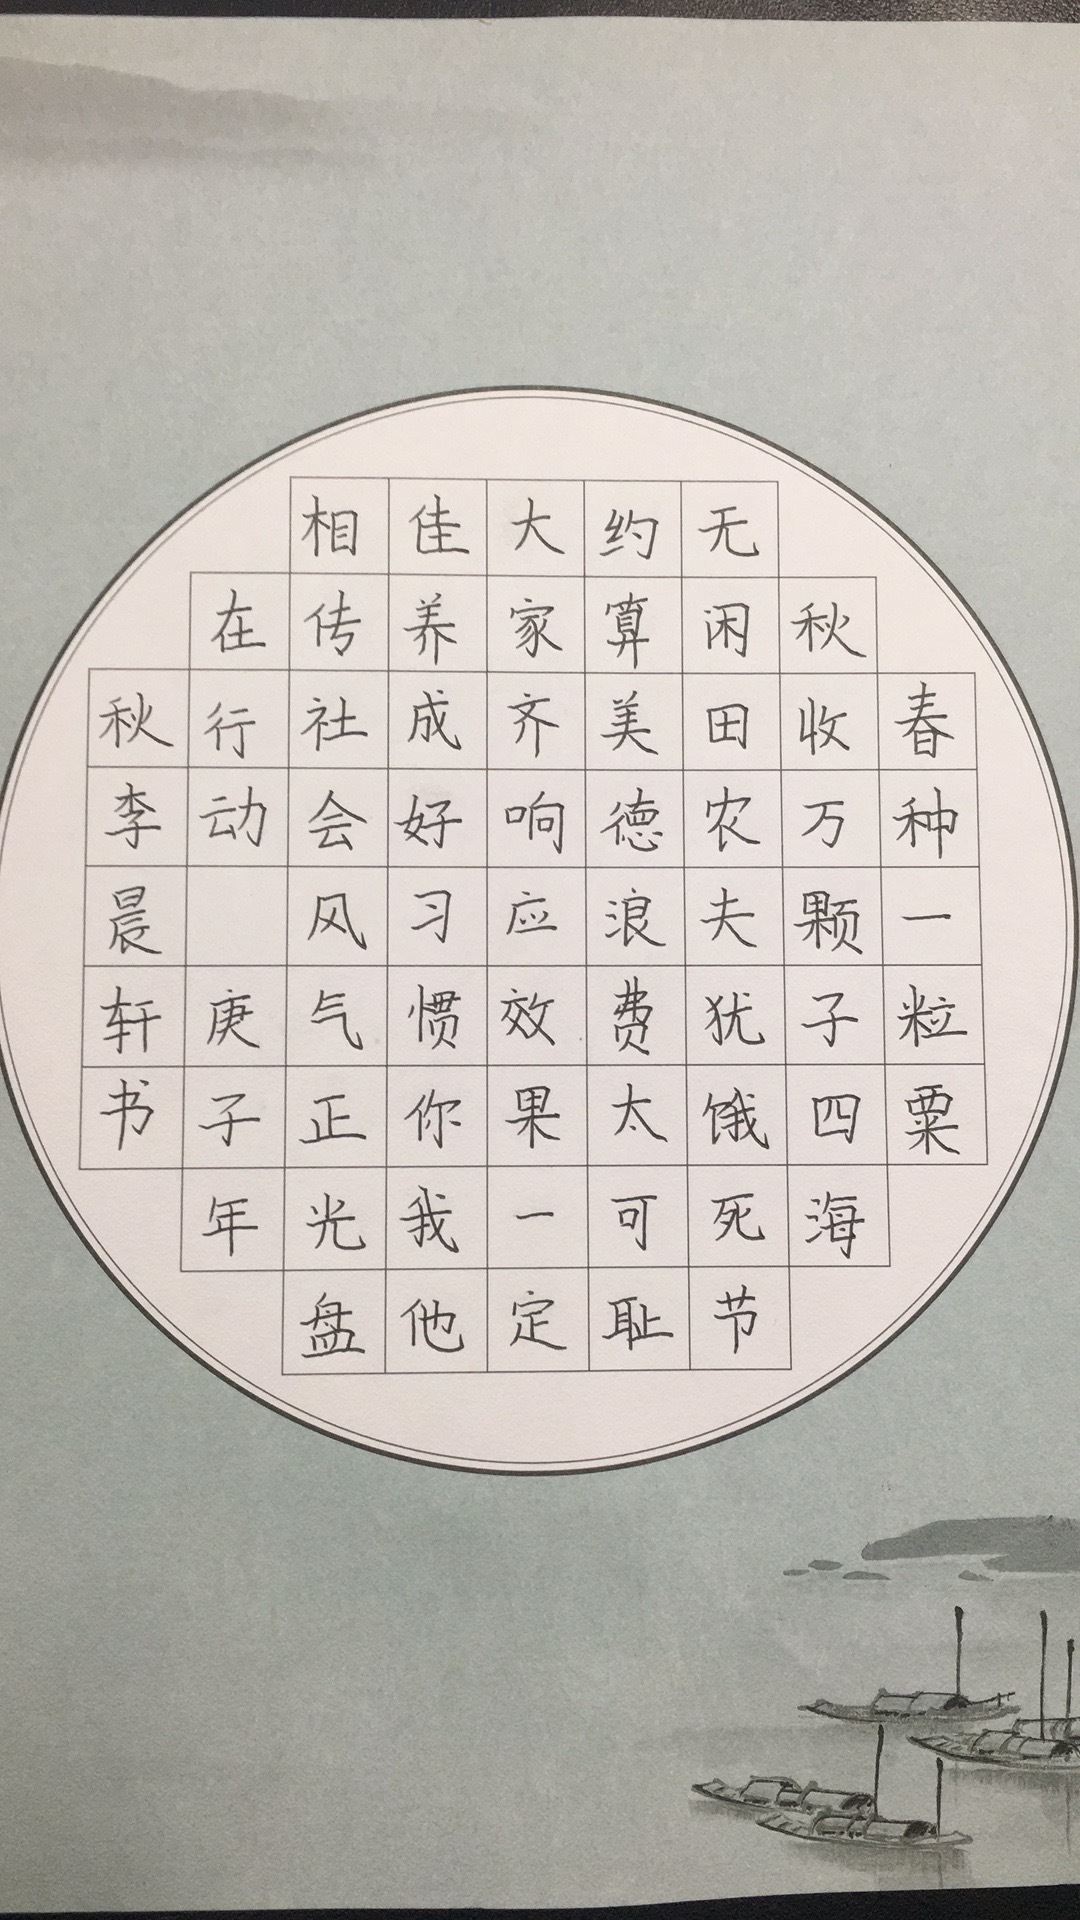 春种一粒粟
秋收万颗子四海
无闲田农夫犹饿死节
约算美德浪费太可耻
大家齐响应效果一定
佳养成好习惯你我他
相传社会风气正光盘
在行动 庚子年
秋李晨轩书